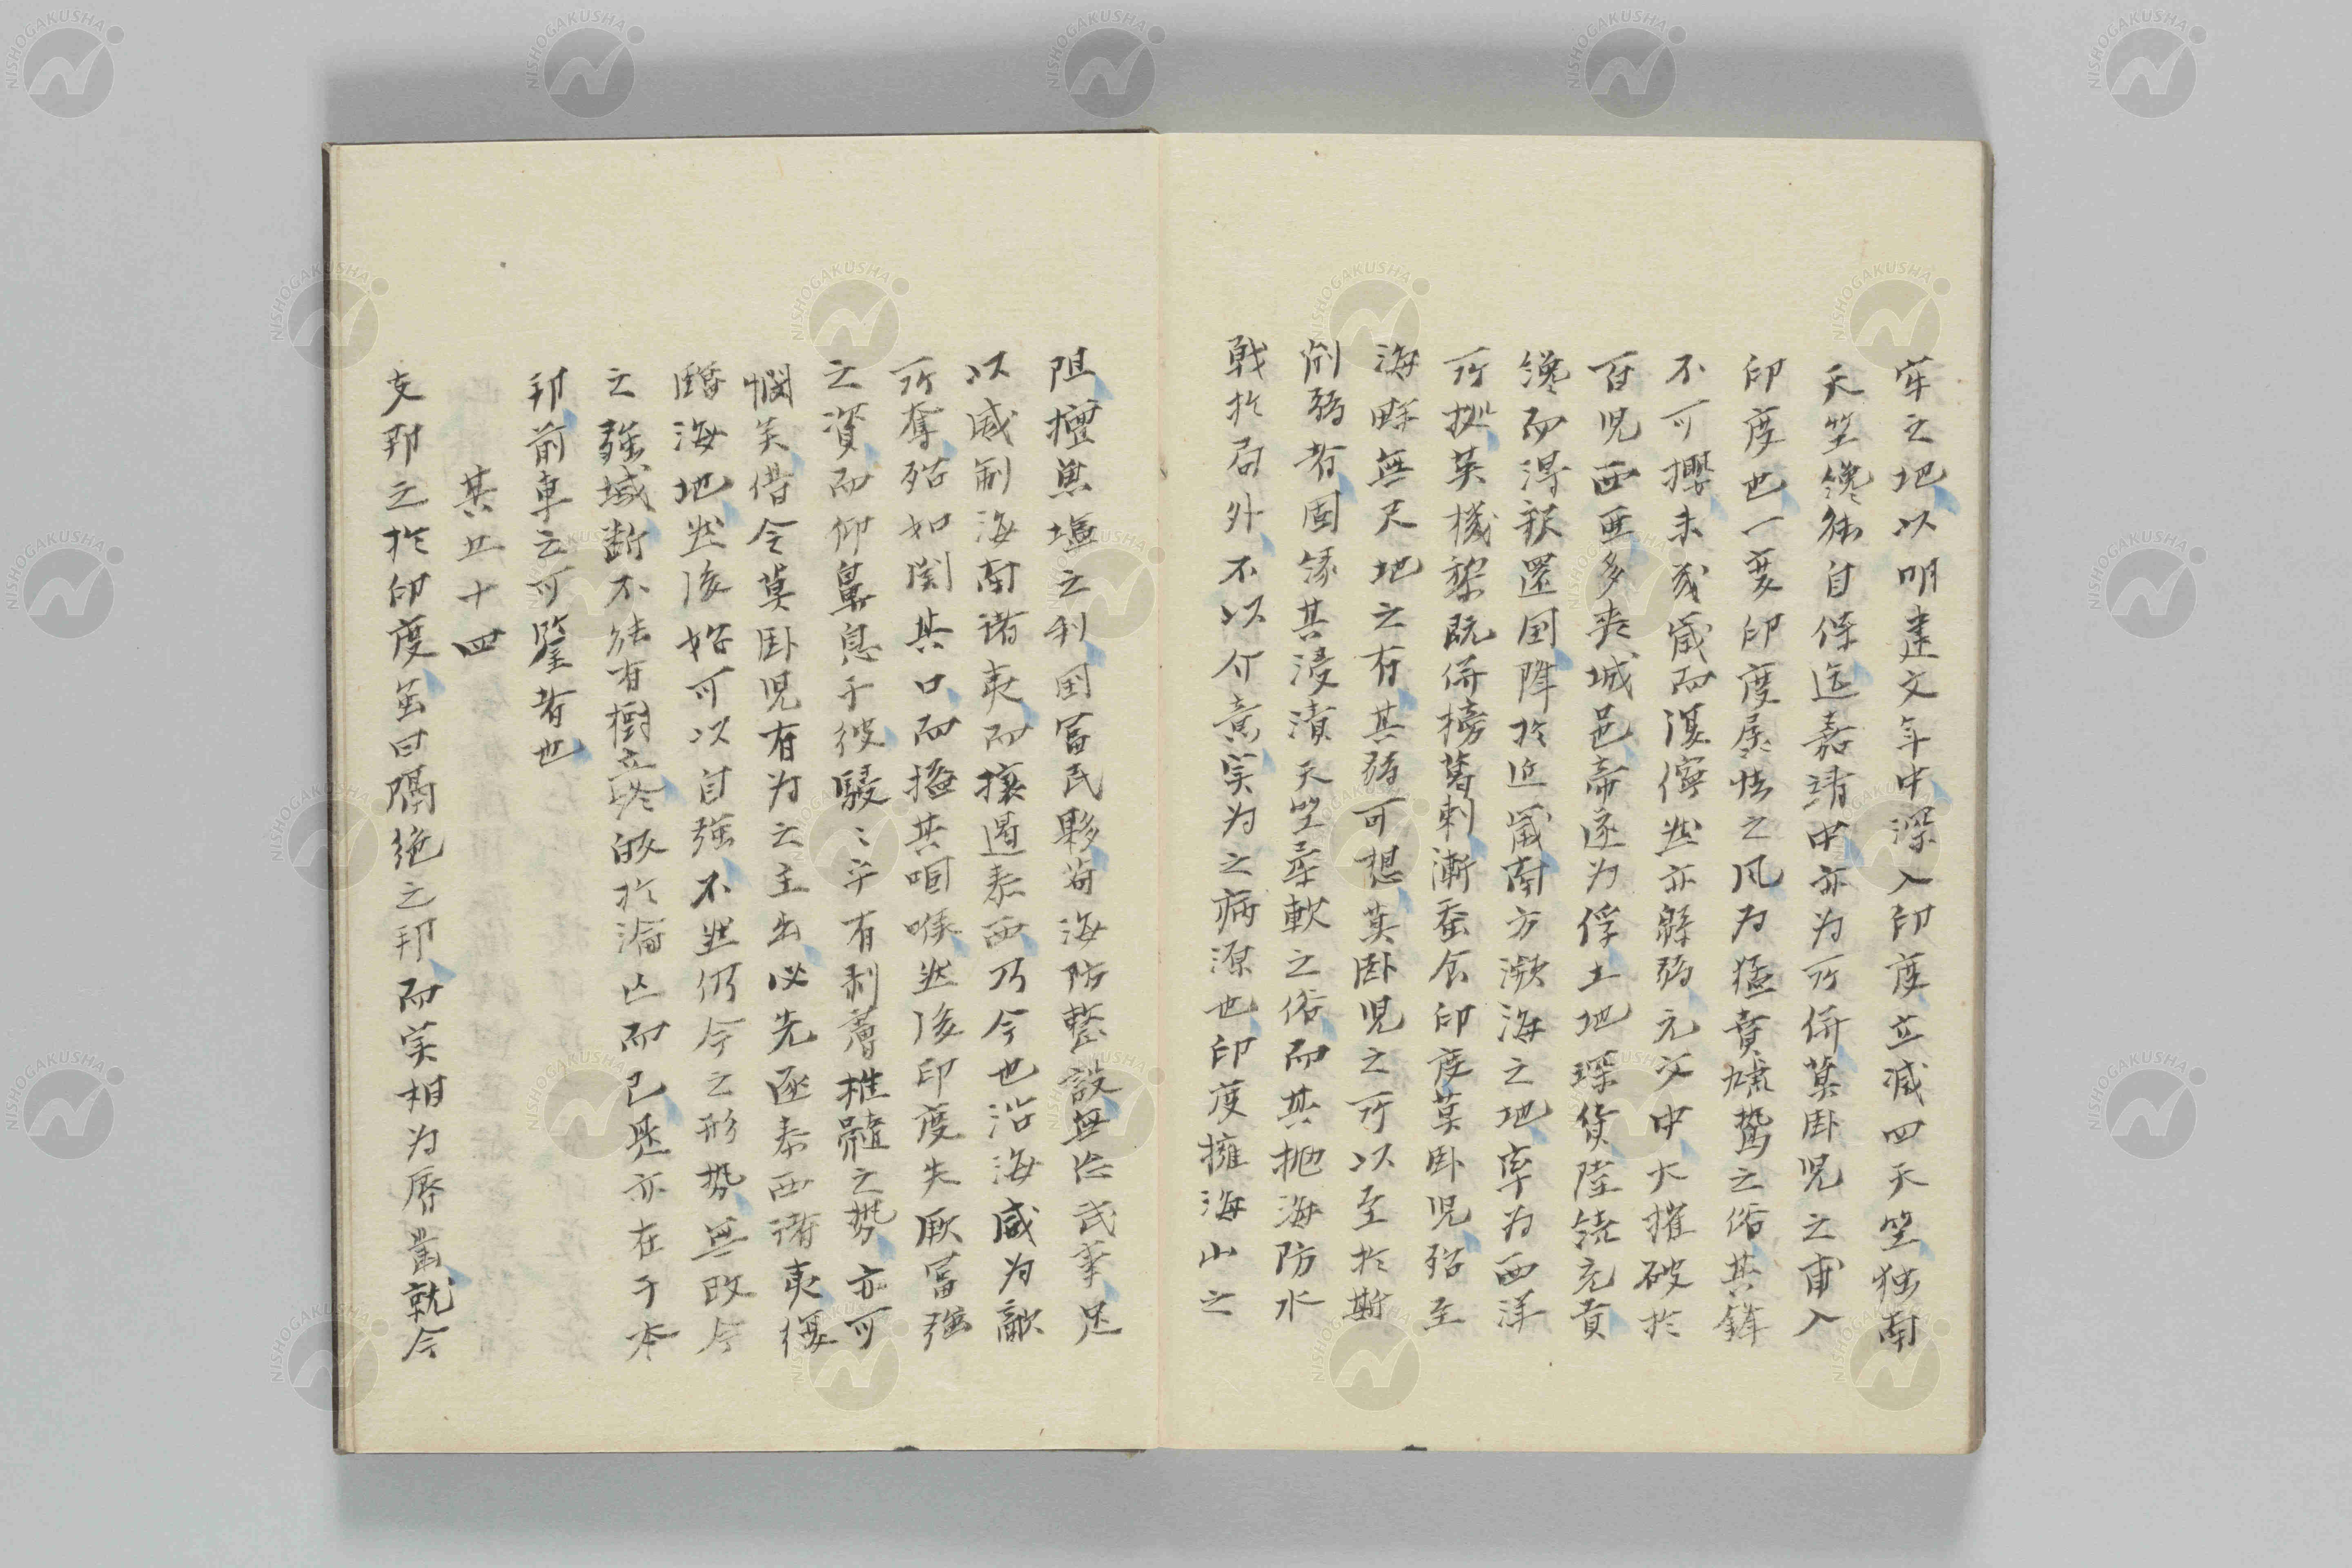 牢之地以明建文年中深入印度立滅四天竺独南
天竺纔能自保迄嘉靖中亦为所併莫卧児之甫入
印度也一変印度孱怯之风为猛賁慓鷙之俗其鋒
不可攖未幾歳而漫儜然亦緜弱元文中大摧破於
百児西亜多夹城邑帝遂为俘土地琛貨陸続充貢
纔而得釈還国降於近歳南方瀕海之地率为西洋
所拠英機黎既併榜葛剌漸蚕食印度莫卧児殆至
海畔無尺地之有其弱可想莫卧児之所以至於斯
削弱者固縁其浸漬天竺柔軟之俗而其抛海防水
戦於局外不以介意実为之病源也印度擁海山之
阻擅魚塩之利国富民夥苟海防整設無徃武事足
以威制海南諸夷而攘遏泰西乃今也沿海咸为敵
所奪殆如関其口而搤其咽喉然後印度失厥富強
之資而仰鼻息于彼駸々乎有剥膚椎髄之勢亦可
憫矣借令莫卧児有为之主出必先逐泰西諸夷復
瀋海地然後始可以自強不然仍今之形勢無改今
之疆域断不能有樹立終皈於淪亡而已是亦在于本
邦前車之可鑒者也
其五十四
支那之於印度虽曰隔绝之邦而実相为唇歯就今